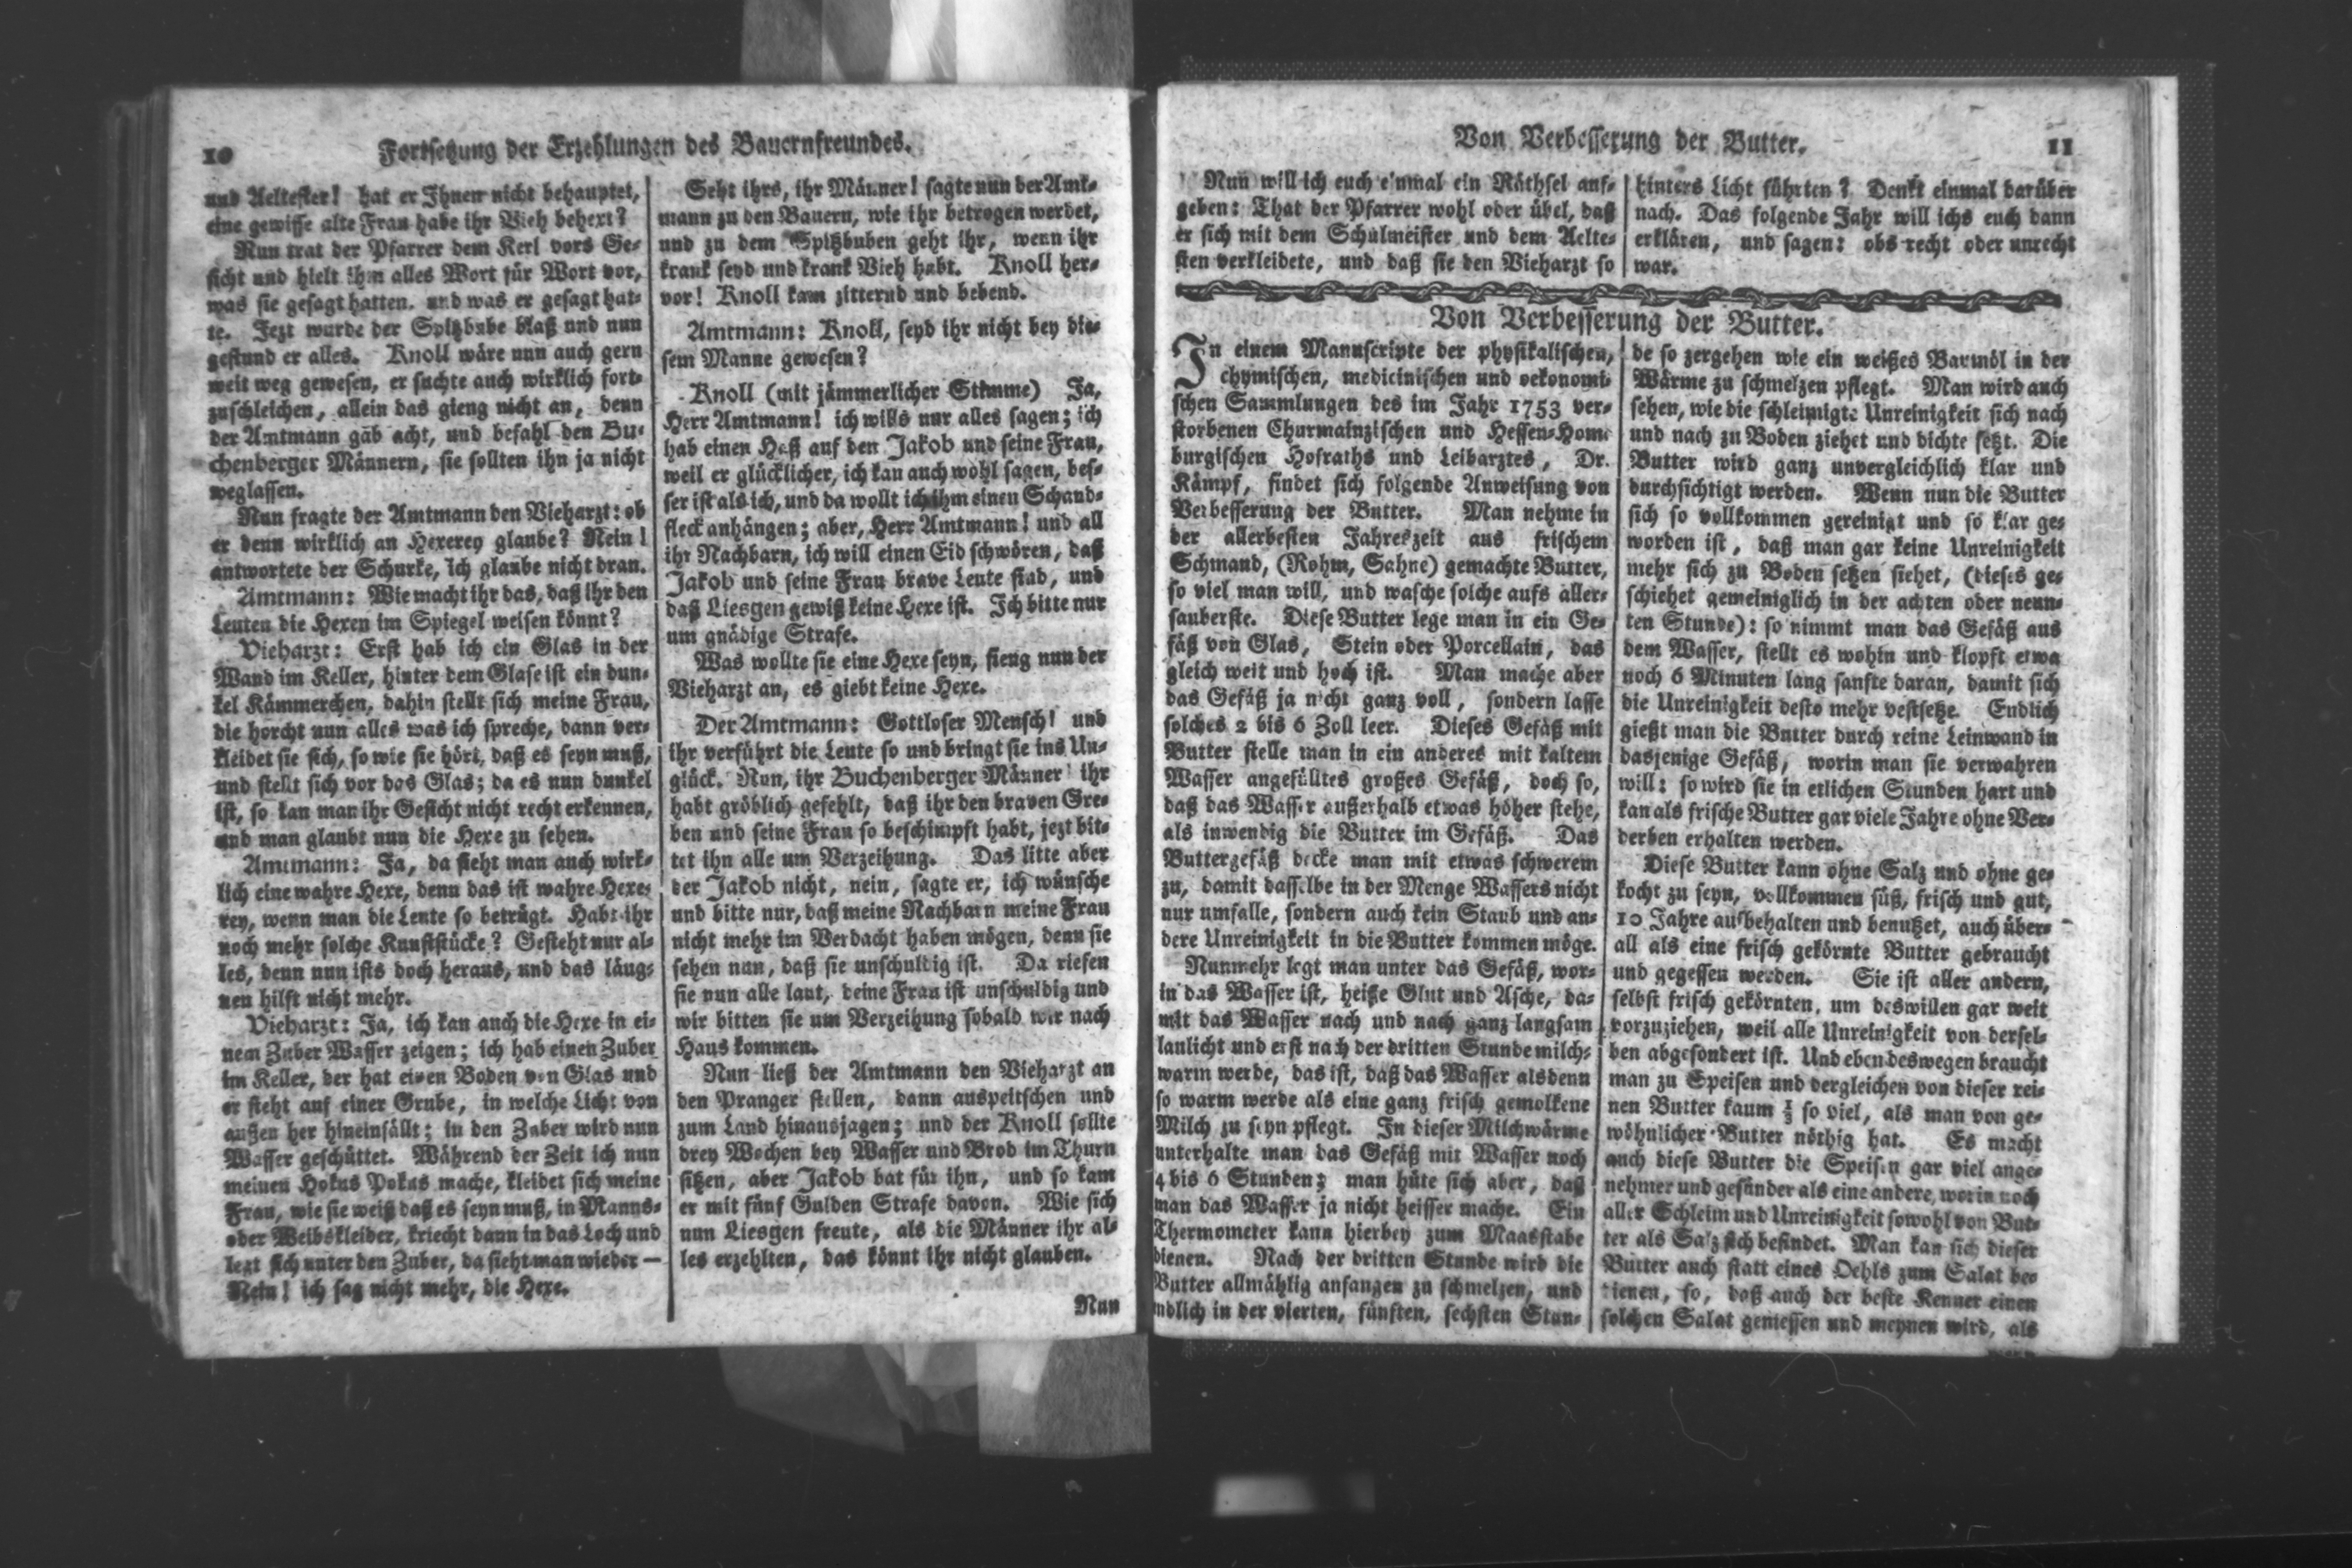 10
Fortsetzung der Erzehlungen des Bauernfreundes.
und Aeltester! hat er Ihnen nicht behauptet,
eine gewisse alte Frau habe ihr Vieh behext?
Nun trat der Pfarrer dem Kerl vors Ge-
sicht und hielt ihm alles Wort für Wort vor,
was sie gesagt hatten, und was er gesagt hat-
te. Jezt wurde der Spitzbube blaß und nun
gestund er alles. Knoll wäre nun auch gern
weit weg gewesen, er suchte auch wirklich fort-
zuschleichen, allein das gieng nicht an, denn
der Amtmann gab acht, und befahl den Bu-
chenberger Männern, sie sollten ihn ja nicht
weglassen.
Nun fragte der Amtmann den Vieharzt: ob
er denn wirklich an Hexerey glaube? Nein!
antwortete der Schurke, ich glaube nicht dran.
Amtmann: Wie macht ihr das, daß ihr den
Leuten die Hexen im Spiegel weisen könnt?
Vieharzt: Erst hab ich ein Glas in der
Wand im Keller, hinter dem Glase ist ein dun-
kel Kämmerchen, dahin stellt sich meine Frau,
die horcht nun alles was ich spreche, dann ver-
kleidet sie sich, so wie sie hört, daß es seyn muß,
und stellt sich vor das Glas; da es nun dunkel
ist, so kan man ihr Gesicht nicht recht erkennen,
und man glaubt nun die Hexe zu sehen.
Amtmann: Ja, da sieht man auch wirk-
lich eine wahre Hexe, denn das ist wahre Hexe-
rey, wenn man die Leute so beträgt. Habt ihr
noch mehr solche Kunststücke? Gesteht nur al-
les, denn nun ists doch heraus, und das läug-
nen hilft nicht mehr.
Vieharzt: Ja, ich kan auch die Hexe in ei-
nem Zuber Wasser zeigen; ich hab einen Zuber
im Keller, der hat einen Boden von Glas und
er steht auf einer Grube, in welche Licht von
außen her hineinfällt; in den Zuber wird nun
Wasser geschüttet. Während der Zeit ich nun
meinen Hokus Pokus mache, kleidet sich meine
Frau, wie sie weiß daß es seyn muß, in Manns-
oder Weibskleider, kriecht dann in das Loch und
legt sich unter den Zuber, da sieht man wieder —
Nein! ich sag nicht mehr, die Hexe.
Seht ihrs, ihr Männer! sagte nun der Amt-
mann zu den Bauern, wie ihr betrogen werdet,
und zu dem Spitzbuben geht ihr, wenn ihr
krank seyd und krank Vieh habt. Knoll her-
vor! Knoll kam zitternd und bebend.
Amtmann: Knoll, seyd ihr nicht bey die-
sem Manne gewesen?
Knoll (mit jämmerlicher Stimme) Ja,
Herr Amtmann! ich wills nur alles sagen; ich
hab einen Haß auf den Jakob und seine Frau,
weil er glücklicher, ich kan auch wohl sagen, bes-
ser ist als ich, und da wollt ich ihm einen Schand-
fleck anhängen; aber, Herr Amtmann! und all
ihr Nachbarn, ich will einen Eid schwören, daß
Jakob und seine Frau brave Leute sind, und
daß Liesgen gewiß keine Hexe ist. Ich bitte nur
um gnädige Strafe.
Was wollte sie eine Hexe seyn, fieng nun der
Vieharzt an, es giebt keine Hexe.
Der Amtmann: Gottloser Mensch! und
ihr verführt die Leute so und bringt sie ins Un-
glück. Nun, ihr Buchenberger Männer! ihr
habt gröblich gefehlt, daß ihr den braven Gre-
ben und seine Frau so beschimpft habt, jezt bit-
tet ihn alle um Verzeihung. Das litte aber
der Jakob nicht, nein, sagte er, ich wünsche
und bitte nur, daß meine Nachbarn meine Frau
nicht mehr im Verdacht haben mögen, denn sie
sehen nun, daß sie unschuldig ist. Da riefen
sie nun alle laut, deine Frau ist unschuldig und
wir bitten sie um Verzeihung sobald wir nach
Haus kommen.
Nun ließ der Amtmann den Vieharzt an
den Pranger stellen, dann auspeitschen und
zum Land hinausjagen; und der Knoll sollte
drey Wochen bey Wasser und Brod im Thurn
sitzen, aber Jakob bat für ihn, und so kam
er mit fünf Gulden Strafe davon. Wie sich
nun Liesgen freute, als die Männer ihr al-
les erzehlten, das könnt ihr nicht glauben.
Nun
Von Verbesserung der Butter.
11
Nun will ich euch einmal ein Räthsel auf-
geben: That der Pfarrer wohl oder übel, daß
er sich mit dem Schulmeister und dem Aelte-
sten verkleidete, und daß sie den Vieharzt so
hinters Licht führten? Denkt einmal darüber
nach. Das folgende Jahr will ichs euch dann
erklären, und sagen: obs recht oder unrecht
war.
Von Verbesserung der Butter.
In einem Manuscripte der physikalischen,
chymischen, medicinischen und oekonomi-
schen Sammlungen des im Jahr 1753 ver-
storbenen Churmainzischen und Hessen-Hom-
burgischen Hofraths und Leibarztes, Dr.
Kämpf, findet sich folgende Anweisung von
Verbesserung der Butter. Man nehme in
der allerbesten Jahreszeit aus frischem
Schmand, (Rohm, Sahne) gemachte Butter,
so viel man will, und wasche solche aufs aller-
sauberste. Diese Butter lege man in ein Ge-
fäß von Glas, Stein oder Porcellain, das
gleich weit und hoch ist. Man mache aber
das Gefäß ja nicht ganz voll, sondern lasse
solches 2 bis 6 Zoll leer. Dieses Gefäß mit
Butter stelle man in ein anderes mit kaltem
Wasser angefülltes großes Gefäß, doch so,
daß das Wasser außerhalb etwas höher stehe,
als inwendig die Butter im Gefäß. Das
Buttergefäß decke man mit etwas schwerem
zu, damit dasselbe in der Menge Wassers nicht
nur umfalle, sondern auch kein Staub und an-
dere Unreinigkeit in die Butter kommen möge.
Nunmehr legt man unter das Gefäß, wor-
in das Wasser ist, heiße Glut und Asche, da-
mit das Wasser nach und nach ganz langsam
laulicht und erst nach der dritten Stunde milch-
warm werde, das ist, daß das Wasser alsdenn
so warm werde als eine ganz frisch gemolkene
Milch zu seyn pflegt. In dieser Milchwärme
unterhalte man das Gefäß mit Wasser noch
4 bis 6 Stunden; man hüte sich aber, daß
man das Wasser ja nicht heisser mache. Ein
Thermometer kann hierbey zum Maasstabe
dienen. Nach der dritten Stunde wird die
Butter allmählig anfangen zu schmelzen, und
endlich in der vierten, fünften, sechsten Stun-
de so zergehen wie ein weißes Baumöl in der
Wärme zu schmelzen pflegt. Man wird auch
sehen, wie die schleimigte Unreinigkeit sich nach
und nach zu Boden ziehet und dichte setzt. Die
Butter wird ganz unvergleichlich klar und
durchsichtigt werden. Wenn nun die Butter
sich so vollkommen gereinigt und so klar ge-
worden ist, daß man gar keine Unreinigkeit
mehr sich zu Boden setzen siehet, (dieses ge-
schiehet gemeiniglich in der achten oder neun-
ten Stunde): so nimmt man das Gefäß aus
dem Wasser, stellt es wohin und klopft etwa
noch 6 Minuten lang sanfte daran, damit sich
die Unreinigkeit desto mehr vestsetze. Endlich
gießt man die Butter durch reine Leinwand in
dasjenige Gefäß, worin man sie verwahren
will: so wird sie in etlichen Stunden hart und
kan als frische Butter gar viele Jahre ohne Ver-
derben erhalten werden.
Diese Butter kann ohne Salz und ohne ge-
kocht zu seyn, vollkommen süß, frisch und gut,
10 Jahre aufbehalten und benutzet, auch über-
all als eine frisch gekörnte Butter gebraucht
und gegessen werden. Sie ist aller andern,
selbst frisch gekörnten, um deswillen gar weit
vorzuziehen, weil alle Unreinigkeit von dersel-
ben abgesondert ist. Und eben deswegen braucht
man zu Speisen und dergleichen von dieser rei-
nen Butter kaum so viel, als man von ge-
wöhnlicher Butter nöthig hat. Es macht
auch diese Butter die Speisen gar viel ange-
nehmer und gesünder als eine andere, worin noch
aller Schleim und Unreinigkeit sowohl von But-
ter als Salz sich befindet. Man kan sich dieser
Butter auch statt eines Oehls zum Salat be-
dienen, so, daß auch der beste Kenner einen
solchen Salat geniessen und meynen wird, als